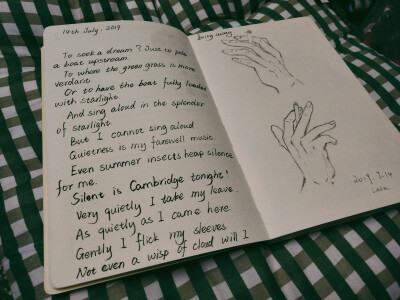 14th July, 2019
To seek a dream? Just to pole
a boat upstream
To where the green grass is more
verdant
Or to have the boat fully loaded
with starlight
And sing aloud in the splendor
of starlight.
But I cannot sing aloud
Quietness is my farewell music.
Even summer insects heap silence
for me.
Silent is Cambridge tonight!
Very quietly I take my leave.
As quietly as I came here
Gently I flick my sleeves
Not even a wisp of cloud will I
going away
2019.7.14